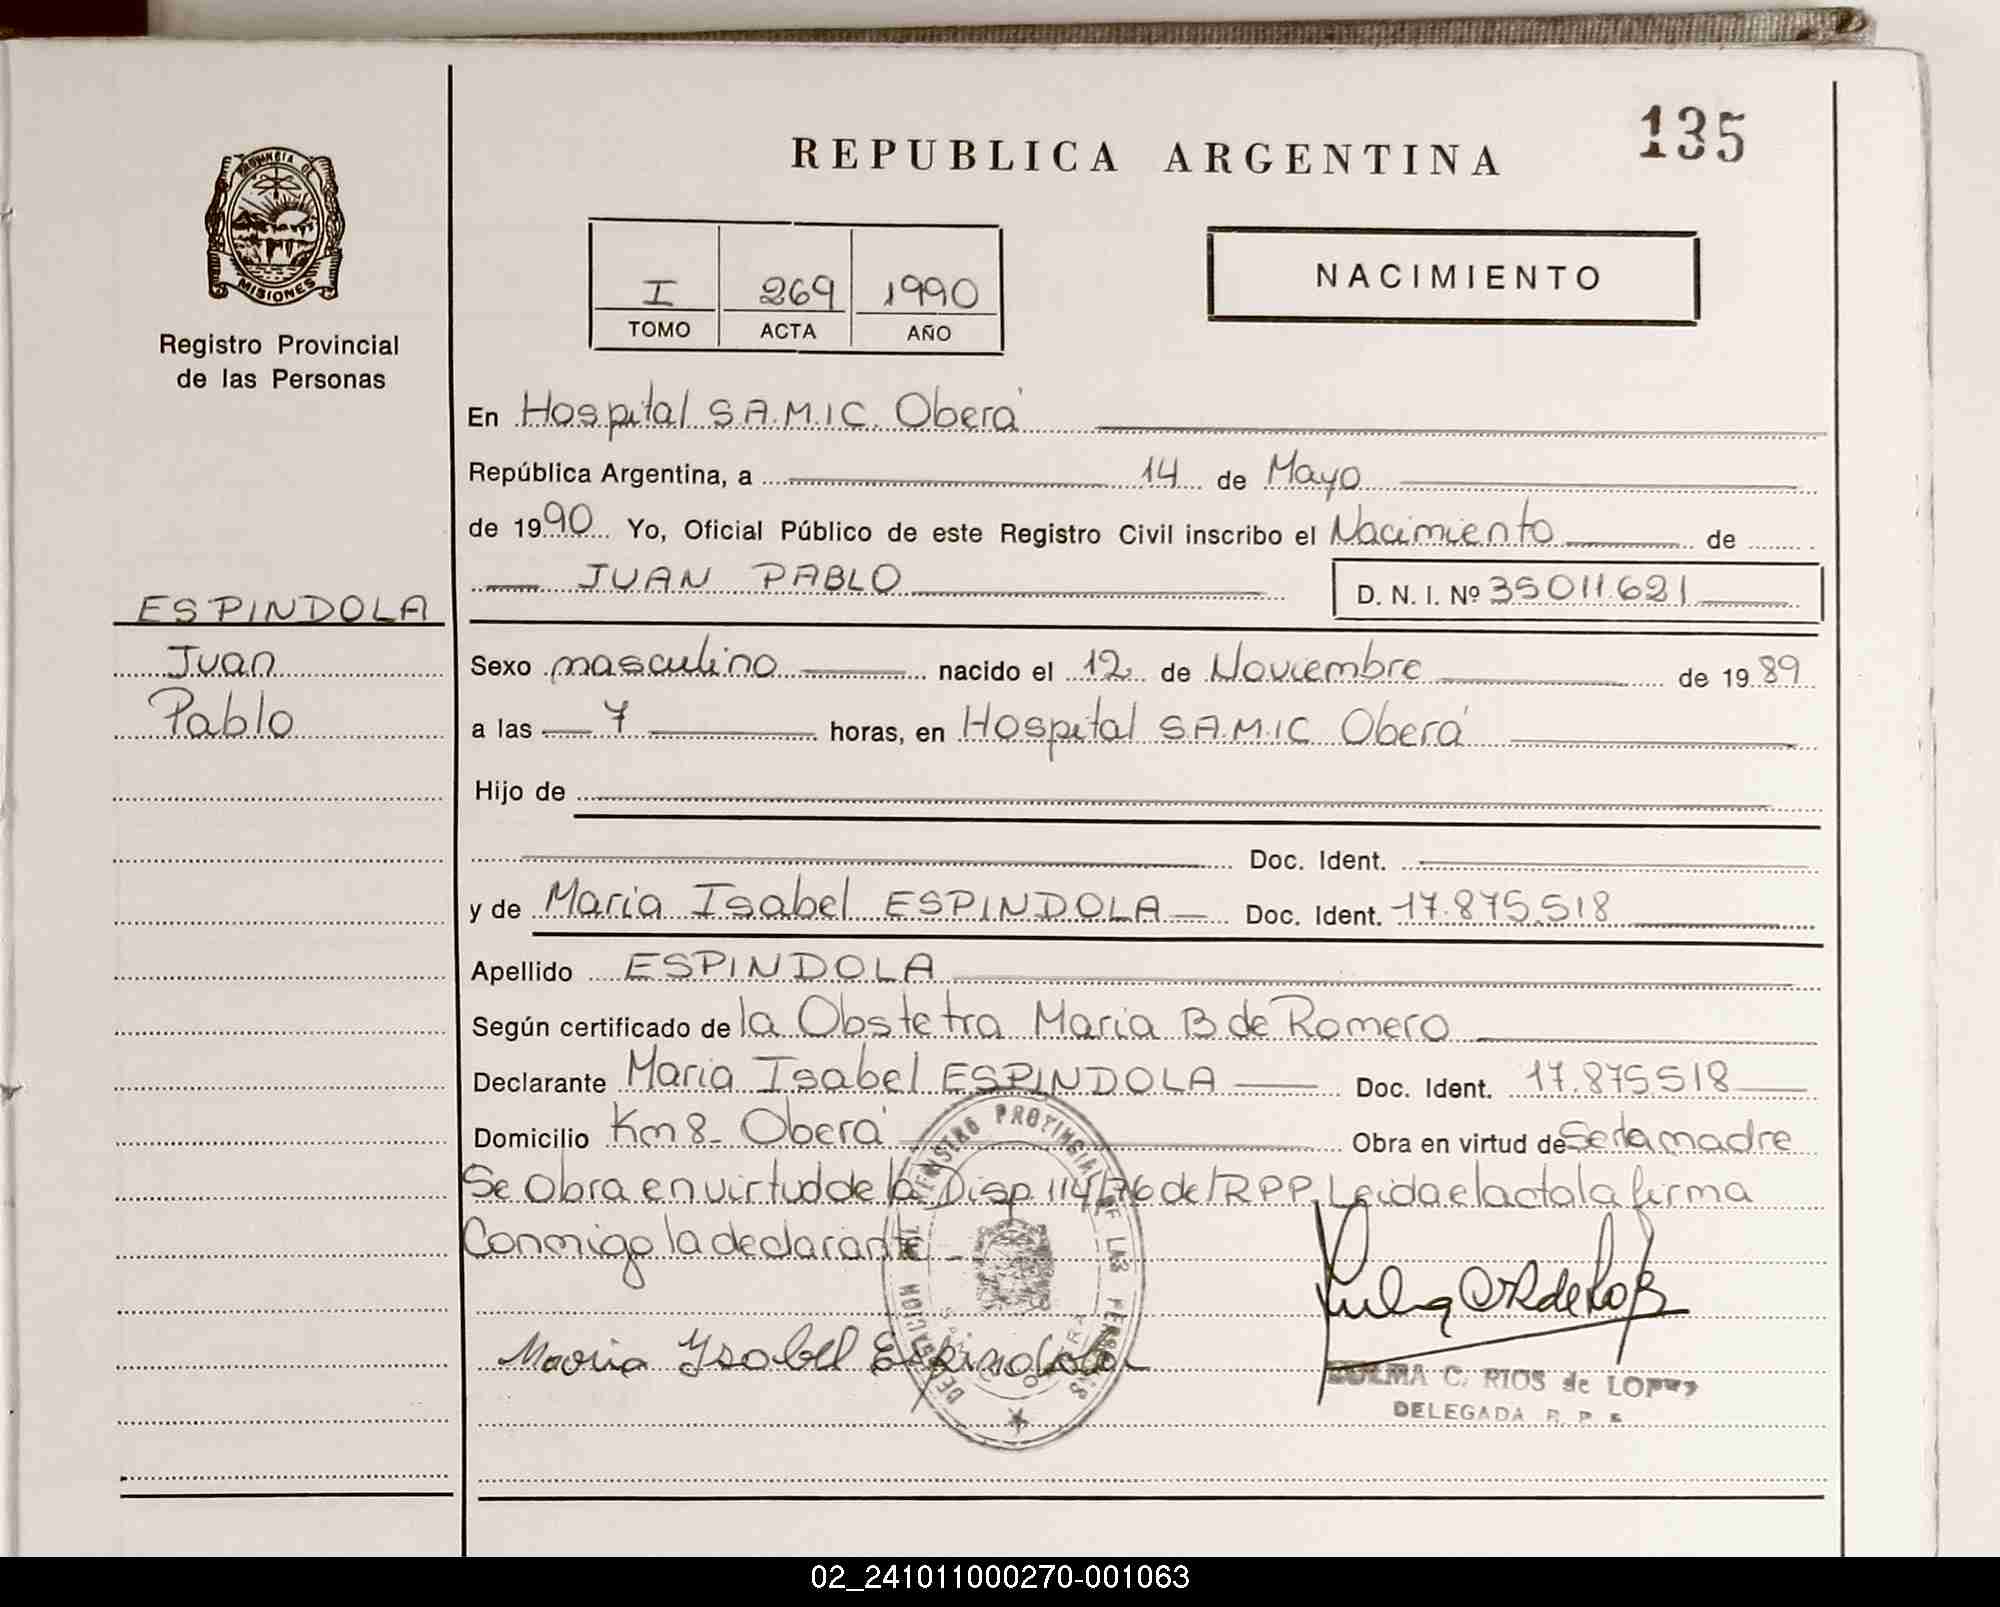 135
REPUBLICA ARGENTINA
PROVINCIA DE
MISIONES
Registro Provincial
de las Personas
I 269 1990
TOMO ACTA AÑO
NACIMIENTO
En Hospital S.A.M.I.C. Oberá
República Argentina, a 14 de Mayo
de 1990 Yo, Oficial Público de este Registro Civil inscribo el Nacimiento de
JUAN PABLO D. N. I. Nº 35011.621
ESPINDOLA
Juan
Pablo
Sexo masculino nacido el 12 de Noviembre de 1989
a las 7 horas, en Hospital S.A.M.I.C Oberá
Hijo de
Doc. Ident.
y de Maria Isabel ESPINDOLA Doc. Ident. 17.875.518
Apellido ESPINDOLA
Según certificado de la Obstetra Maria B de Romero
Declarante Maria Isabel ESPINDOLA Doc. Ident. 17.875518
Domicilio Km 8_ Oberá Obra en virtud de Ser la madre
Se Obra en virtud de la Disp. 114/76 del RPP. Leida el acta la firma
Conmigo la declarante
REGISTRO PROVINCIAL DE LAS PERSONAS
Maria Ysabel Espindola
ZULMA C. RIOS de LOPEZ
DELEGADA R. P.
02_241011000270-001063